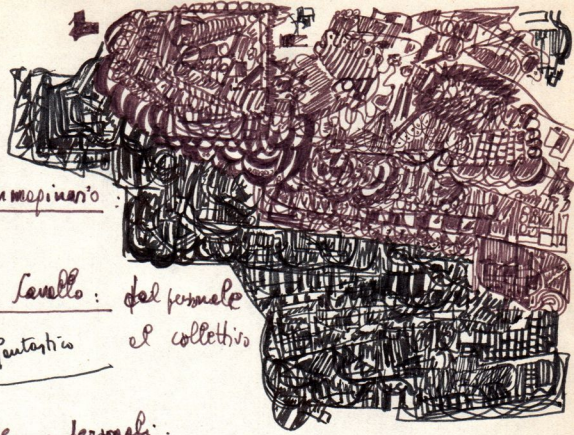 mmaginario :
Cavallo : dal personale
al collettivo
fantastico
personali :